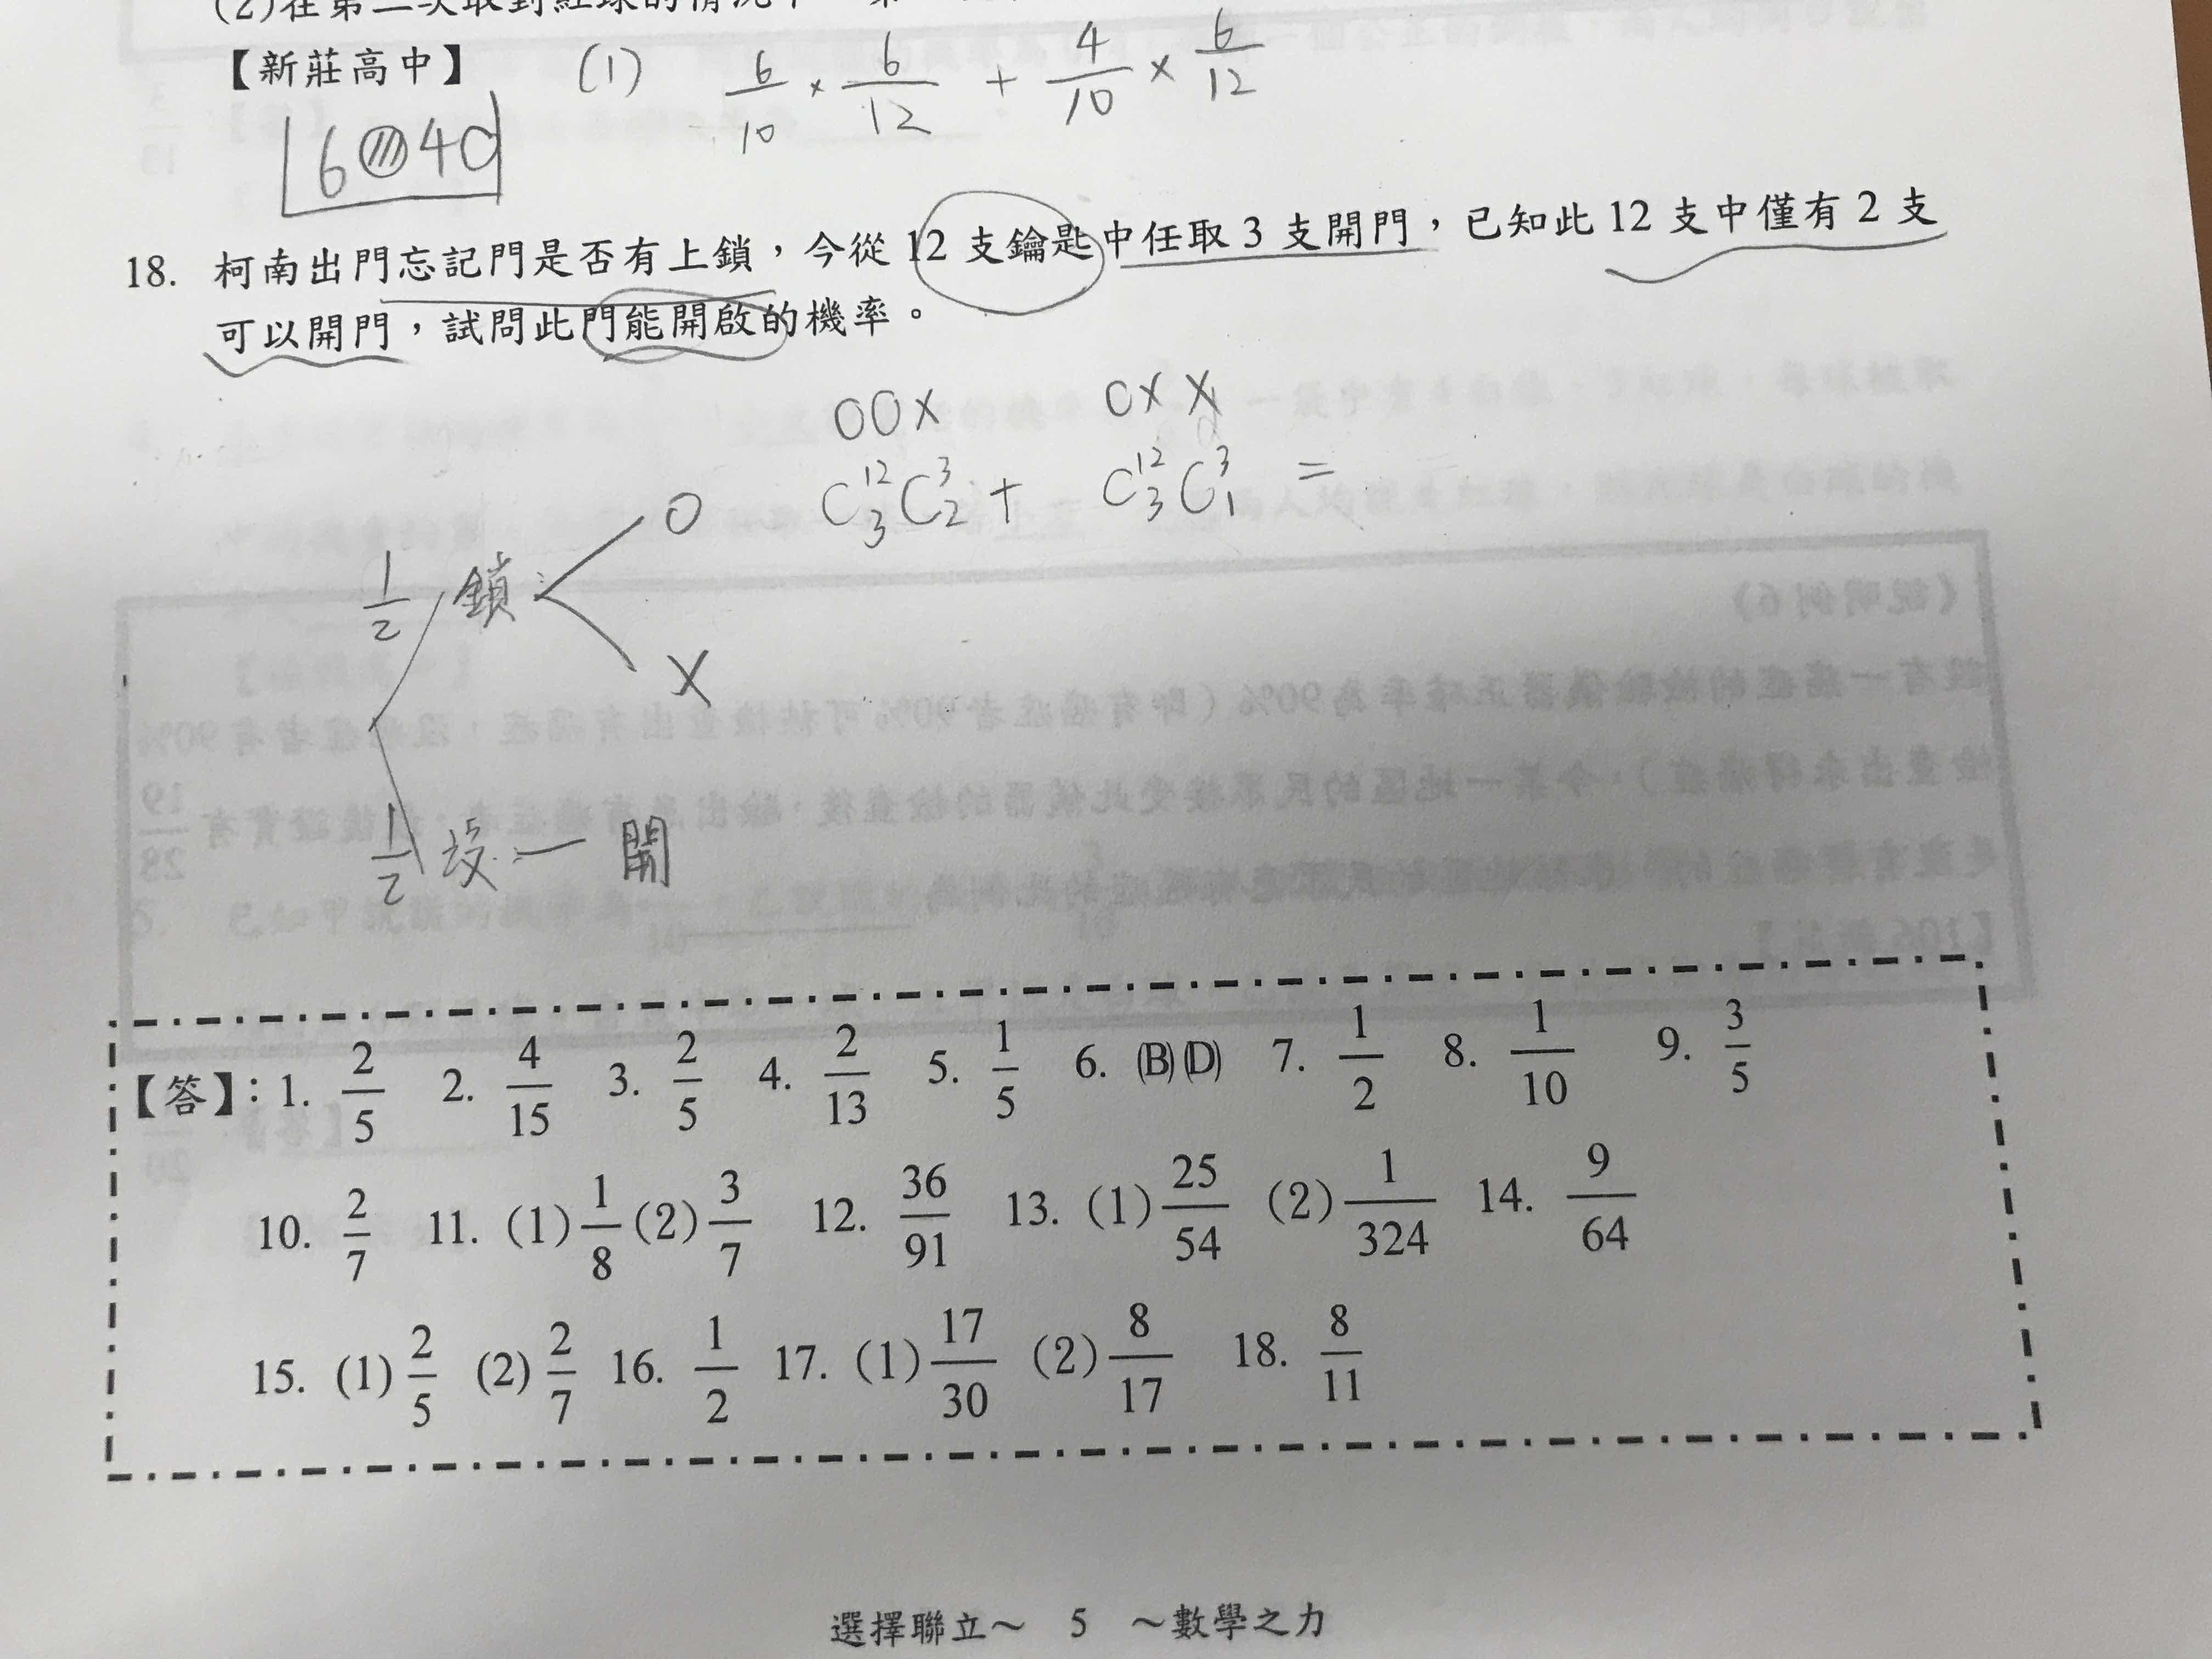 (2)在第二次取到紅球的情況下，第一
【新莊高中】 (1) 6/10 × 6/12 + 4/10 × 6/12
6 4
18. 柯南出門忘記門是否有上鎖，今從 12 支鑰匙中任取 3 支開門，已知此 12 支中僅有 2 支
可以開門，試問此門能開啟的機率。
OOX OXX
C¹²₃C³₂ + C¹²₃C³₁ =
O
1/2 鎖
X
1/2 沒 — 開
【答】：1. 2/5 2. 4/15 3. 2/5 4. 2/13 5. 1/5 6. (B)(D) 7. 1/2 8. 1/10 9. 3/5
10. 2/7 11. (1) 1/8 (2) 3/7 12. 36/91 13. (1) 25/54 (2) 1/324 14. 9/64
15. (1) 2/5 (2) 2/7 16. 1/2 17. (1) 17/30 (2) 8/17 18. 8/11
選擇聯立～ 5 ～數學之力